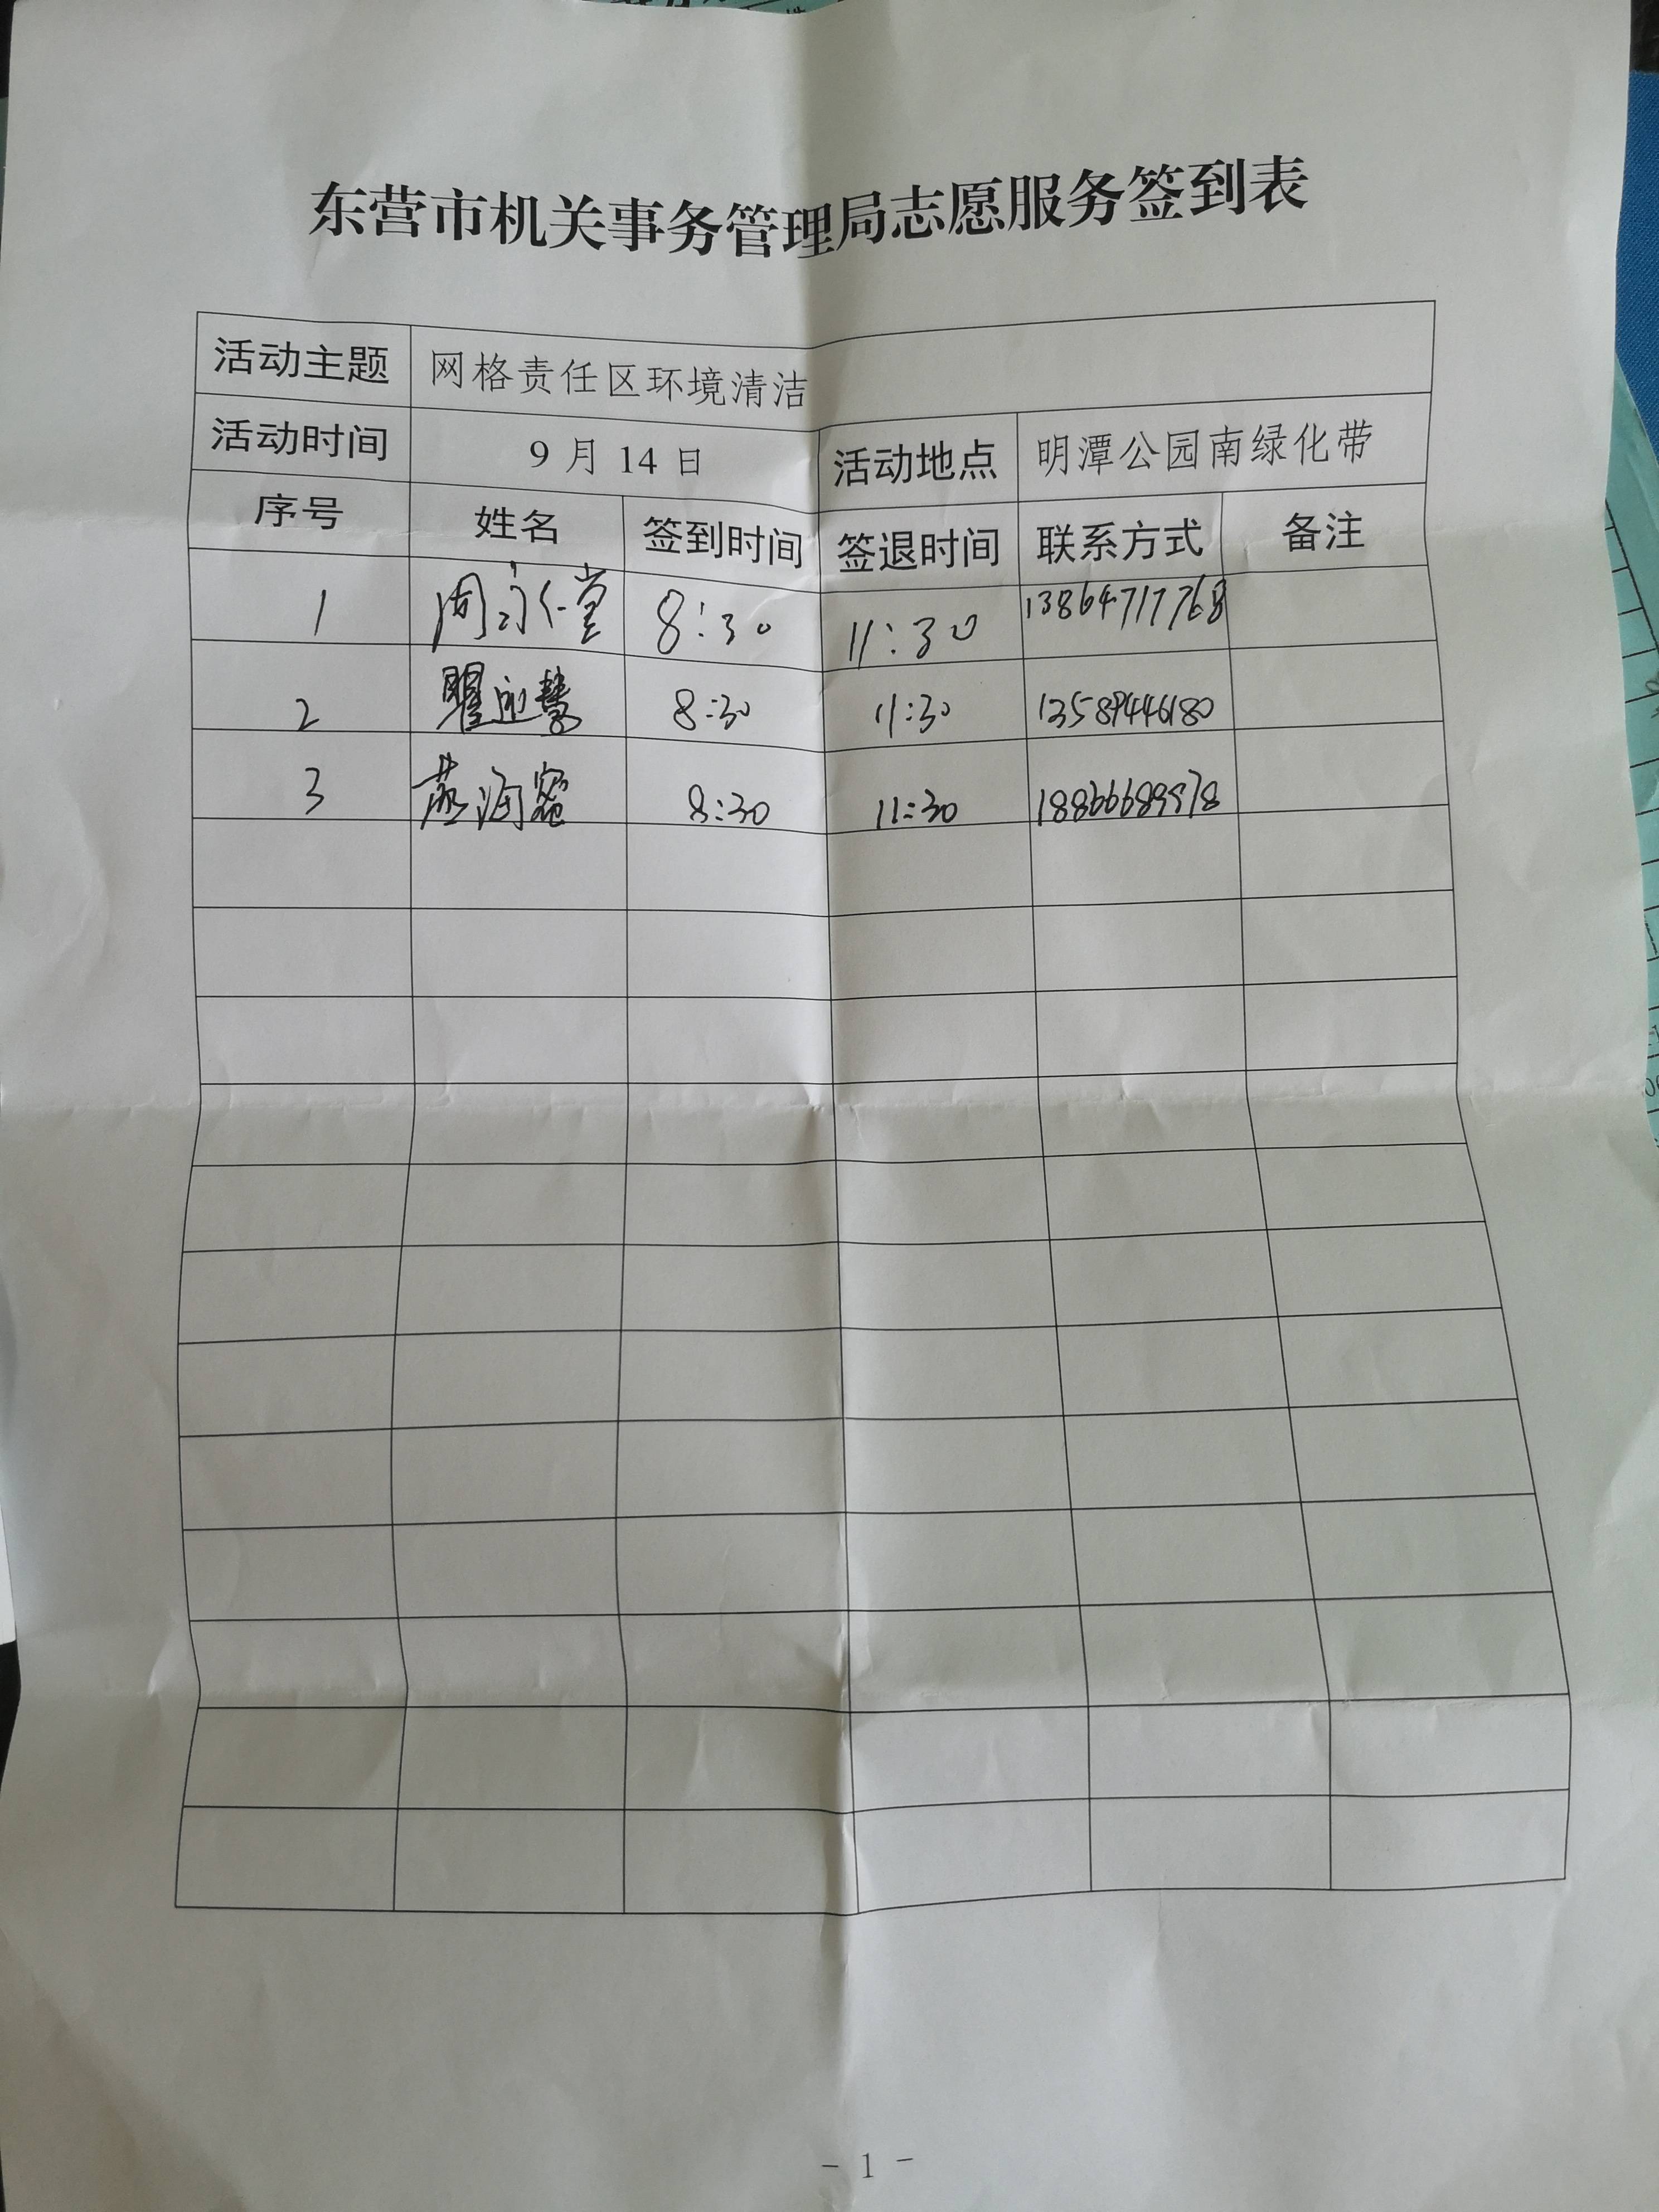 东营市机关事务管理局志愿服务签到表
活动主题 网格责任区环境清洁
活动时间 9月14日 活动地点 明潭公园南绿化带
序号 姓名 签到时间 签退时间 联系方式 备注
1 8:30 11:30 13864717768
2 8:30 11:30 13589446180
3 8:30 11:30
- 1 -